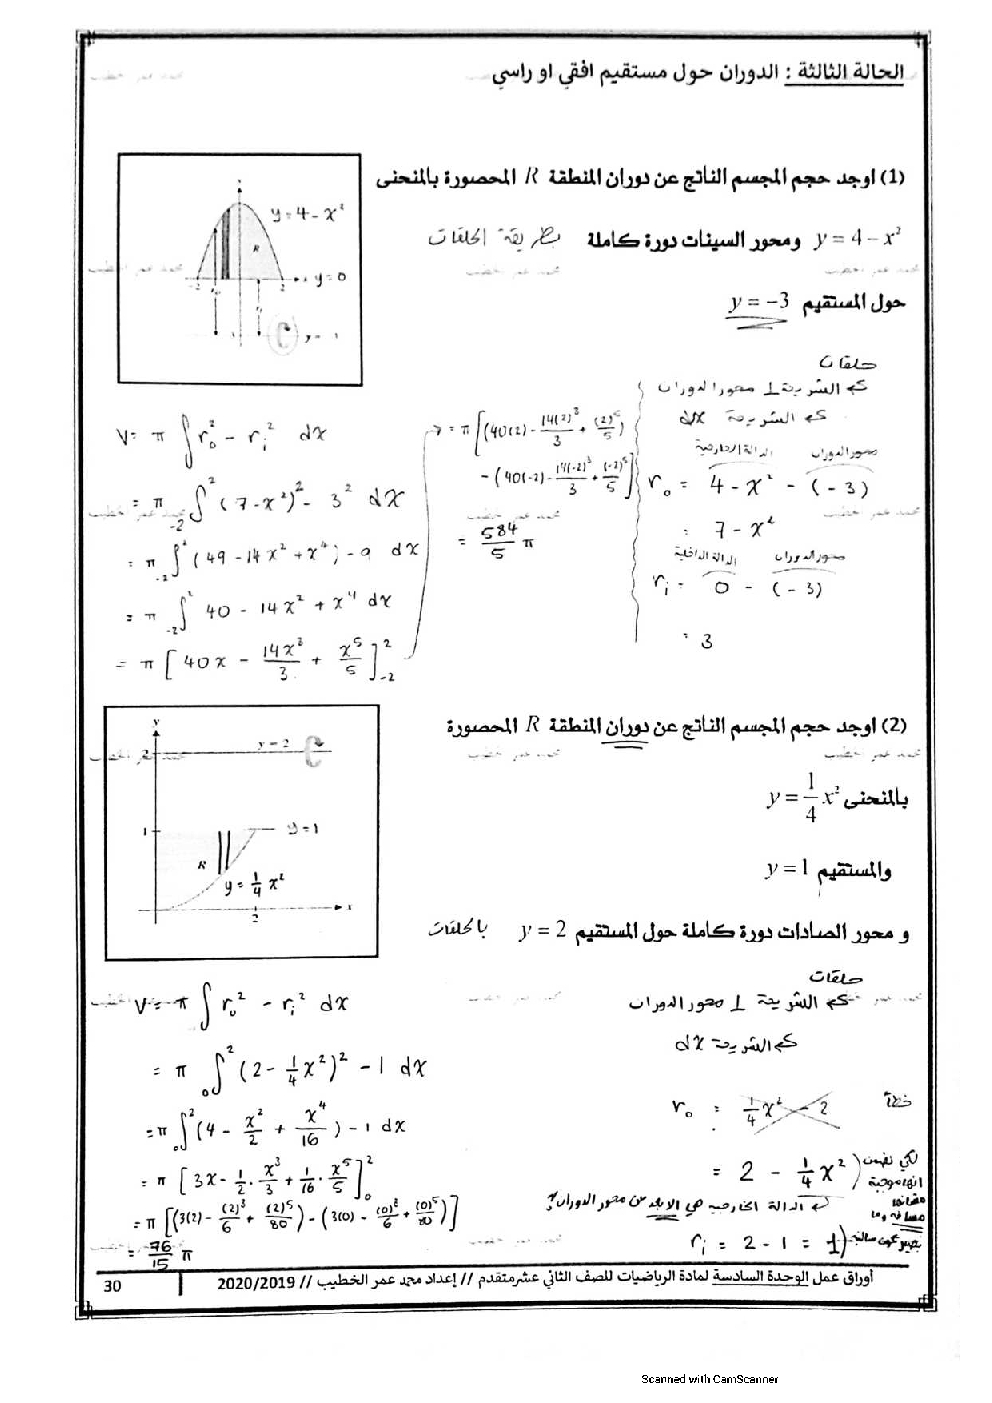 الحالة الثالثة : الدوران حول مستقيم افقي او راسي
(1) اوجد حجم المجسم الناتج عن دوران المنطقة R المحصورة بالمنحنى
y = 4 − x² ومحور السينات دورة كاملة بطريقة الحلقات
حول المستقيم y = −3
y = 4 − x²
R
y = 0
-2
2
حلقات
الشريحة ⊥ محور الدوران
الشريحة dx
محور الدوران الدالة الخارجية
r₀ = 4 − x² − (−3)
= 7 − x²
محور الدوران الدالة الداخلية
rᵢ = 0 − (−3)
= 3
V = π ∫ r₀² − rᵢ² dx
= π ∫₋₂² (7 − x²)² − 3² dx
= π ∫₋₂² (49 − 14x² + x⁴) − 9 dx
= π ∫₋₂² 40 − 14x² + x⁴ dx
= π [40x − 14x³/3 + x⁵/5]₋₂²
= π [(40(2) − 14(2)³/3 + (2)⁵/5)
− (40(−2) − 14(−2)³/3 + (−2)⁵/5)]
= 584/5 π
(2) اوجد حجم المجسم الناتج عن دوران المنطقة R المحصورة
بالمنحنى y = 1/4 x²
والمستقيم y = 1
و محور الصادات دورة كاملة حول المستقيم y = 2 بالحلقات
y
y = 2
2
1
y = 1
R
y = 1/4 x²
2
x
حلقات
الشريحة ⊥ محور الدوران
الشريحة dx
r₀ = 1/4 x² − 2 خطأ
= 2 − 1/4 x² لكي نضمن انها موجبة
الدالة الخارجية هي الابعد من محور الدوران
rᵢ = 2 − 1 = 1
V = π ∫ r₀² − rᵢ² dx
= π ∫₀² (2 − 1/4 x²)² − 1 dx
= π ∫₀² (4 − x²/2 + x⁴/16) − 1 dx
= π [3x − 1/2 · x³/3 + 1/16 · x⁵/5]₀²
= π [(3(2) − (2)³/6 + (2)⁵/80) − (3(0) − (0)³/6 + (0)⁵/80)]
= 76/15 π
أوراق عمل الوحدة السادسة لمادة الرياضيات للصف الثاني عشر متقدم // إعداد محمد عمر الخطيب // 2020/2019
30
Scanned with CamScanner